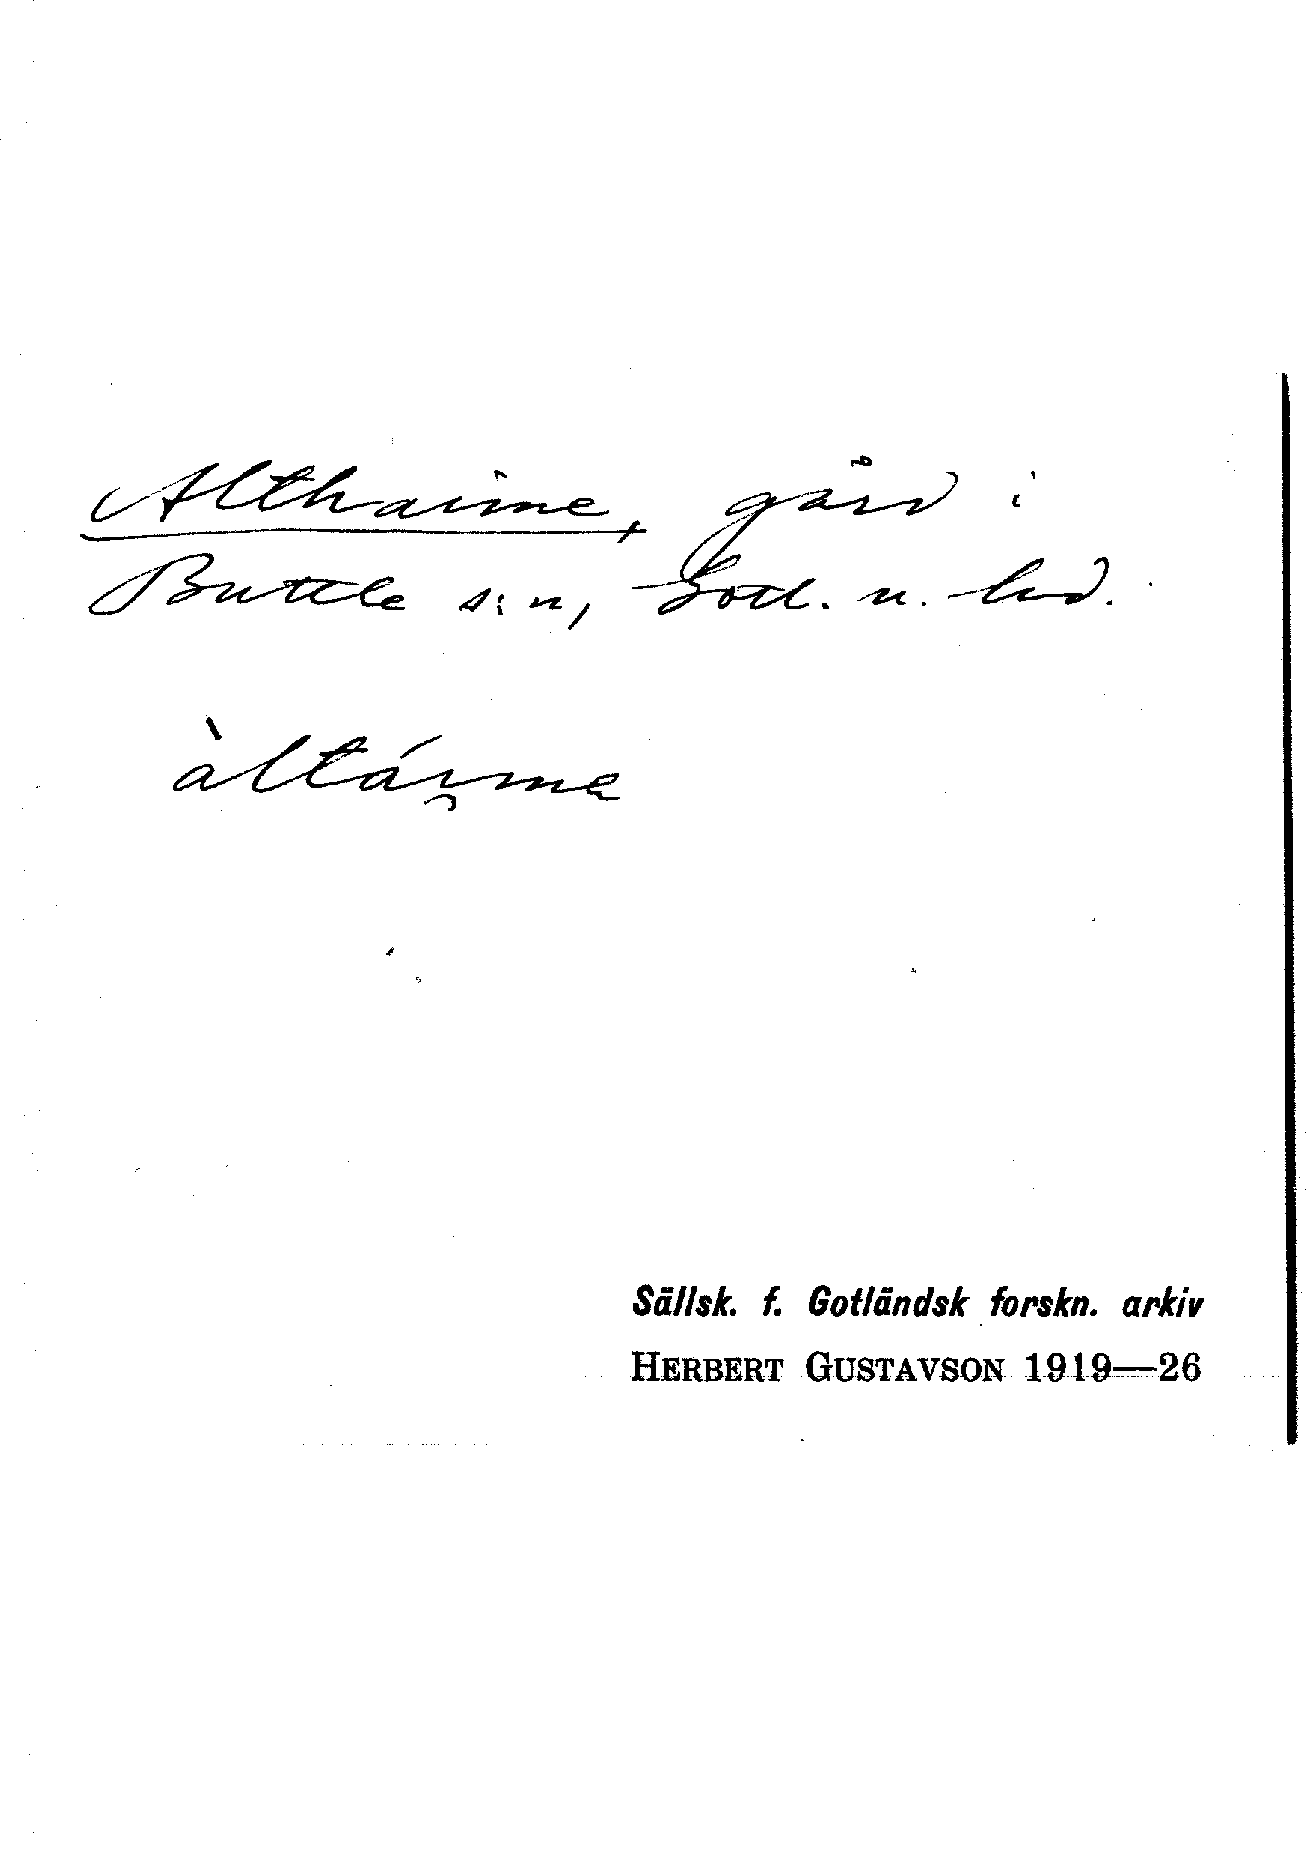 Althaime, gård i
Buttle s:n, Gotl. n. hd.
àltái̯me
Sällsk. f. Gotländsk forskn. arkiv
HERBERT GUSTAVSON 1919—26